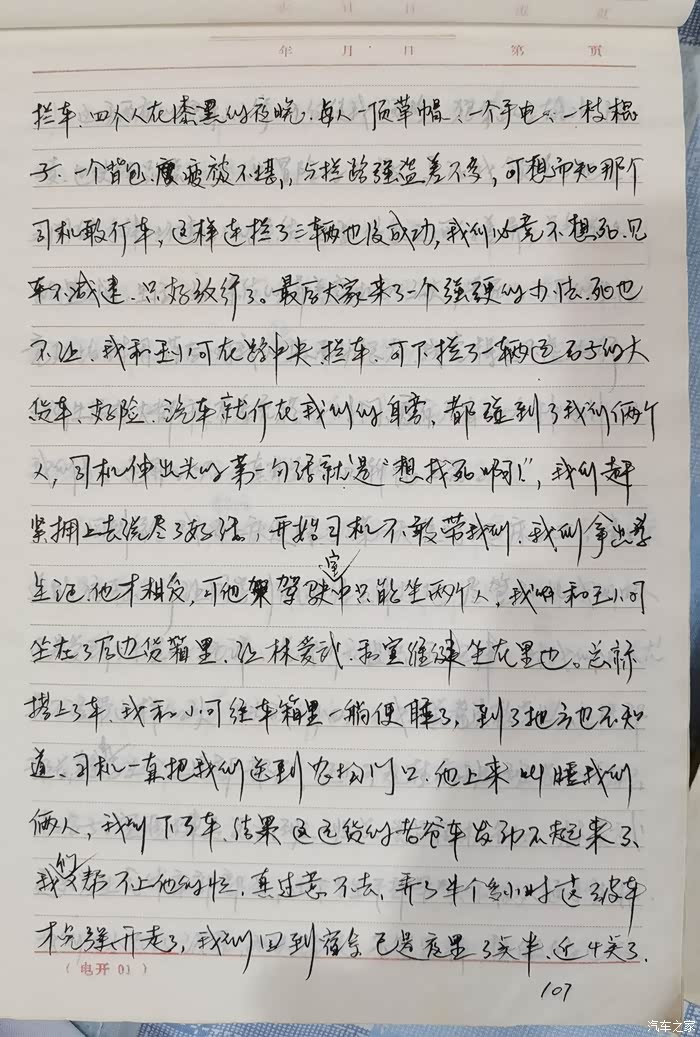 年 月 日 第 页
拦车、四个人在漆黑的夜晚、每人一顶草帽、一个手电、一枝棍
子、一个背包、疲被不堪，与拦路强盗差不多，可想而知那个
司机敢行车，这样连拦了三辆也没成功，我们必竟不想死、见
车不减速、只好放行了。最后大家来了一个强硬的办法、死也
不让、我和王小可在路中央、拦车、可下拦了一辆运石子的大
货车、好险、汽车就行在我们的身旁、都碰到了我们俩个
人，司机伸出头的第一句话就是“想找死啊！”，我们赶
紧拥上去说尽了好话，开始司机不敢带我们、我们拿出学
生证、他才相反，可他驾驶室中只能坐两个人，我和王小可
坐在了后边货箱里、让林爱武、和宣维建坐在里也。总标
搭上了车、我和小可往车箱里一躺便睡了，到了地方也不知
道、司机一直把我们送到农场门口、他上来叫醒我们
俩人，我们下了车、结果这运货的老爸车发动不起来了、
我们又帮不上他的忙、真过意不去、弄了半个多小时这破车
才勉强开走了，我们回到宿舍已是夜里3点半、近4点了.
（电开 01）
107
汽车之家